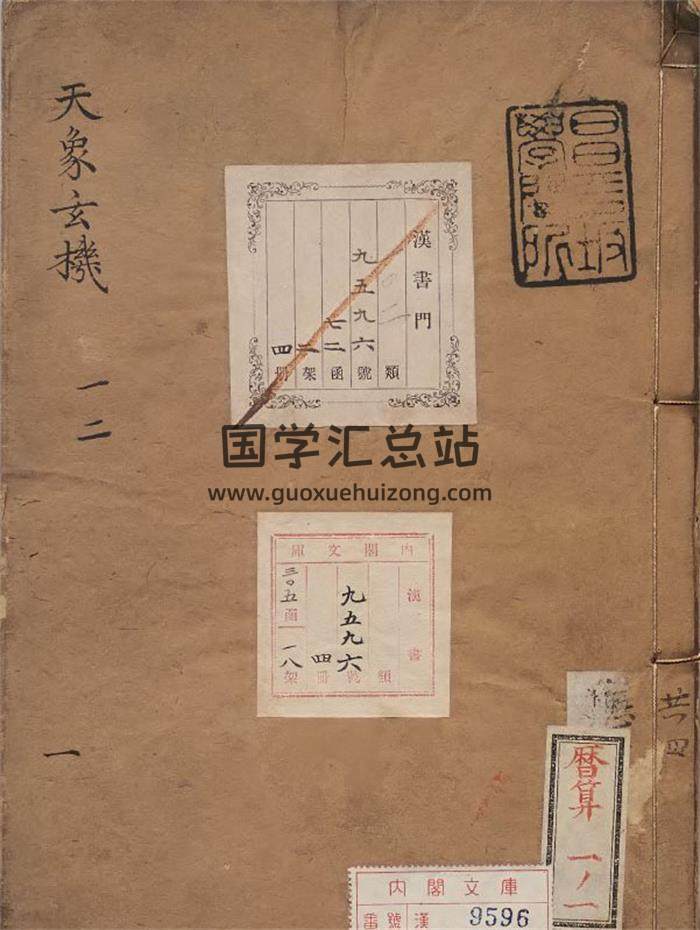 昌平坂
學問所
天象玄機
一二
一
漢書門
類
九五九六號
七二函
二架
四冊
国学汇总站
www.guoxuehuizong.com
内閣文庫
漢書
類
九五九六號
四冊
三〇五函
一八架
共四
暦算 一ノ一
内閣文庫
番號 漢 9596